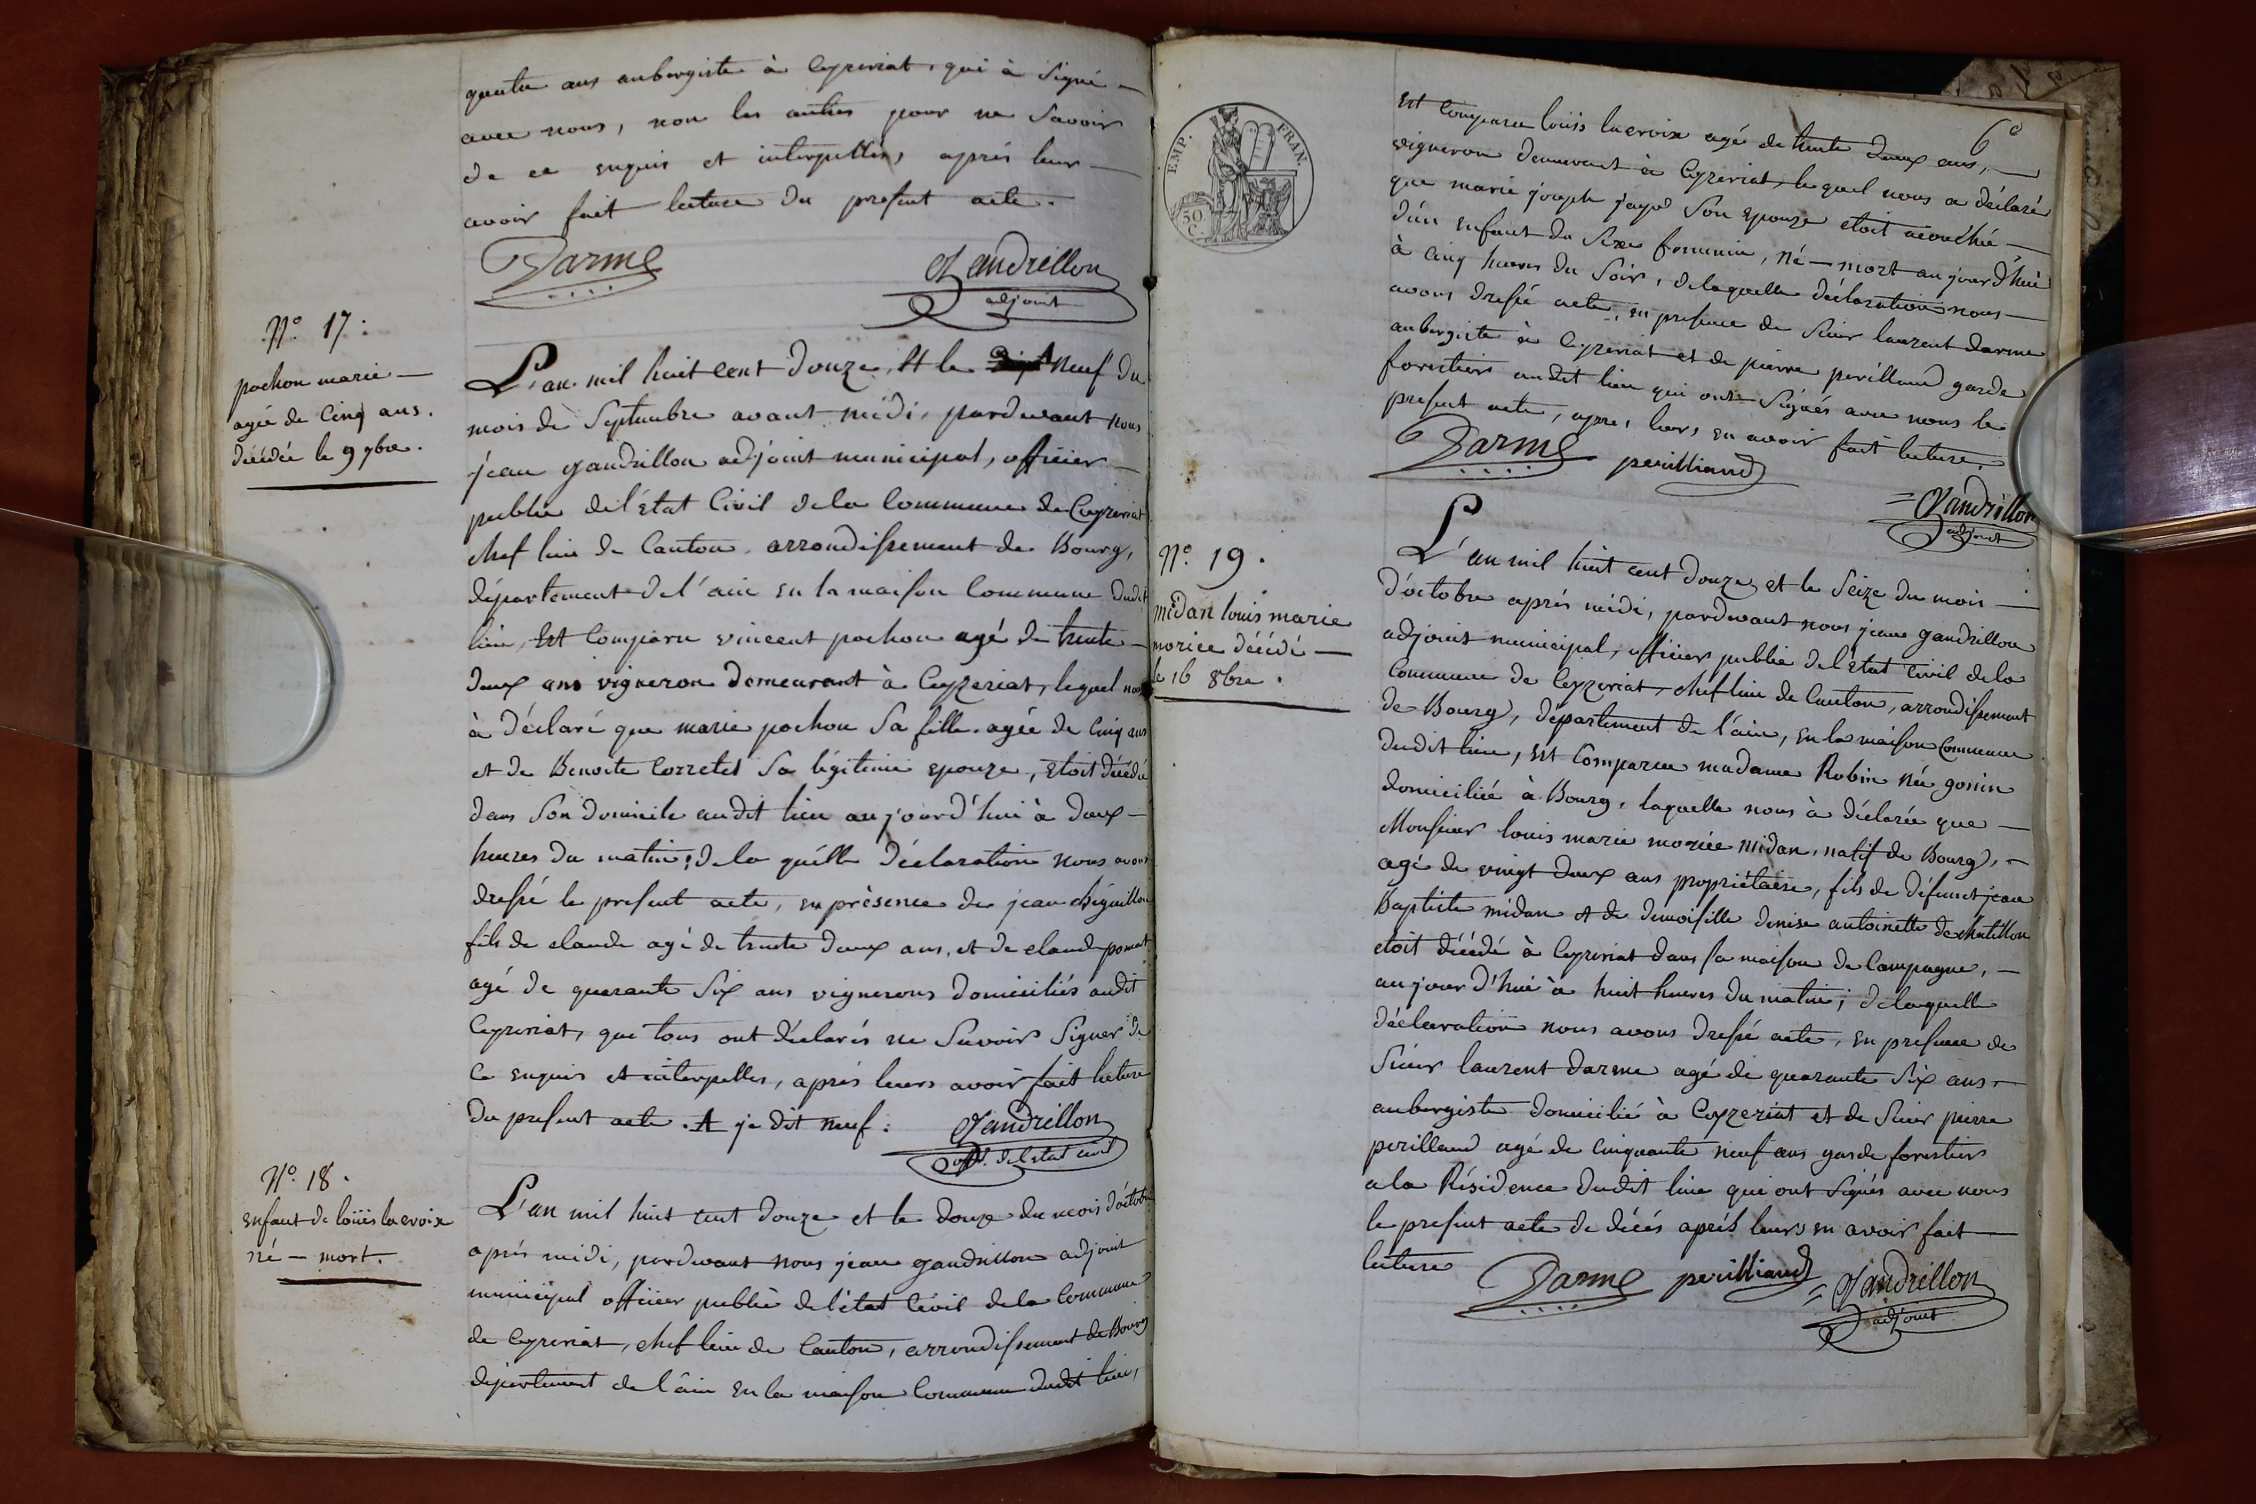 quatre ans aubergiste à Ceyzeriat, qui à signé —
avec nous, non les autres pour ne savoir
de ce enquis et interpellés, aprés leur —
avoir fait lecture du present acte.
Darme
Gandrillon
adjoint
N.º 17:
pochon marie —
agée de cinq ans.
décédée le 9 7bre.
L'an mil huit cent douze, et le neuf du
mois de Septembre avant midi, pardevant nous
jean gandrillon adjoint municipal, officier —
public de l'état Civil de la Commune de Ceyzeriat
chef lieu de Canton, arrondissement de Bourg,
département de l'ain en la maison Commune dudit
lieu, Est Comparu vincent pochon agé de trente —
deux ans vigneron demeurant à Ceyzeriat, lequel nous
à déclaré que marie pochon sa fille agée de cinq ans
et de Benoite Corretel sa légitime epouze, étoit décédée
dans son domicile audit lieu aujourd'hui à deux —
heures du matin; de la quelle déclaration nous avons
dressé le present acte, en présence de jean chiguillon
fils de claude agé de trente deux ans, et de claude poncet
agé de quarante six ans vignerons domiciliés audit
Ceyzeriat, qui tous ont déclarés ne savoir signer de
ce enquis et interpellés, aprés leurs avoir fait lecture
du present acte. et je dit neuf:
Gandrillon
off.r de l'état civil
N.º 18.
Enfant de loüis lacroix
né — mort.
L'an mil huit cent douze et le douze du mois d'octobre
aprés midi, pardevant nous jean gandrillon adjoint
municipal officier public de l'état Civil de la Commune
de Ceyzeriat, chef lieu de Canton, arrondissement de Bourg
département de l'ain en la maison Commune dudit lieu,
6e
EMP. FRAN.
50 C.
Est Comparu loüis lacroix agé de trente deux ans, —
vigneron demeurant à Ceyzeriat, lequel nous a déclaré
que marie joseph jayr son epouze etoit acouchée —
d'un enfant du sexe femenin, né — mort aujourd'hui
à cinq heures du soir, de laquelle déclaration nous —
avons dressé acte, en presence de sieur laurent darme
aubergiste à Ceyzeriat et de pierre perilliand garde
forestiers audit lieu qui ont signés avec nous le
present acte, aprés leurs en avoir fait lecture.
Darme perilliand
= Gandrillon
adjoint
N.º 19.
midan louis marie
moriee décédé —
le 16 8bre.
L'an mil huit cent douze et le seize du mois —
d'octobre aprés midi, pardevant nous jean gandrillon
adjoint municipal, officier public de l'état Civil de la
Commune de Ceyzeriat, chef lieu de Canton, arrondissement
de Bourg, département de l'ain, en la maison Commune
dudit lieu, est Comparue madame Robin née gonin
domiciliée à Bourg, laquelle nous à déclarée que —
Monsieur louis marie moriée midan, natif de Bourg, —
agé de vingt deux ans propriétaire, fils de défunct jean
Baptiste midan et de demoiselle denise antoinette de chatillon
etoit décédé à Ceyzeriat dans sa maison de Campagne, —
aujourd'hui à huit heures du matin; de laquelle
déclaration nous avons dressé acte, en presence de
Sieur laurent darme agé de quarante six ans —
aubergiste domicilié à Ceyzeriat et de sieur pierre
perilliand agé de cinquante neuf ans garde forestier
a la Résidence dudit lieu qui ont signés avec nous
le present acte de décés aprés leurs en avoir fait —
lecture
Darme perilliand = Gandrillon
adjoint